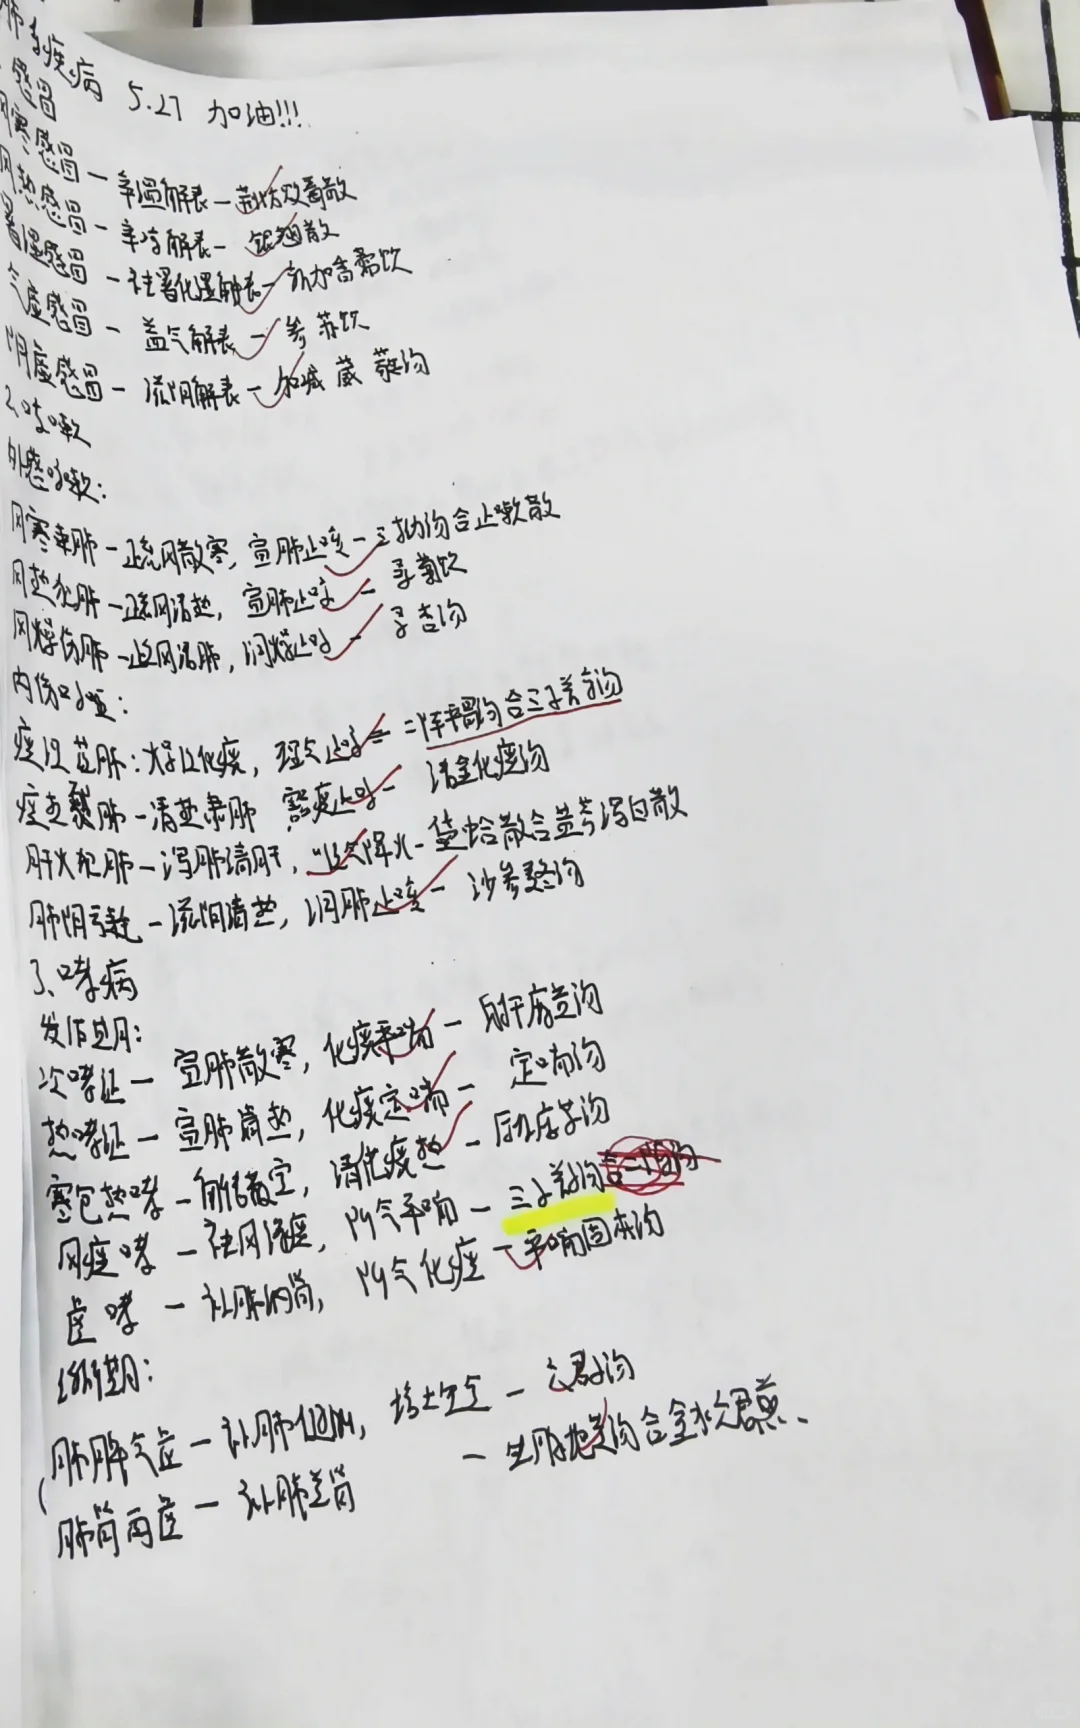 肺系疾病 5.27 加油!!!
感冒
风寒感冒—辛温解表—荆防败毒散
风热感冒—辛凉解表—银翘散
暑湿感冒—祛暑化湿解表—新加香薷饮
气虚感冒—益气解表—参苏饮
阴虚感冒—滋阴解表—加减葳蕤汤
2、咳嗽
外感咳嗽：
风寒束肺—疏风散寒，宣肺止咳—三拗汤合止嗽散
风热犯肺—疏风清热，宣肺止咳—桑菊饮
风燥伤肺—疏风清肺，润燥止咳—桑杏汤
内伤咳嗽：
痰湿蕴肺：燥湿化痰，理气止咳—二陈平胃汤合三子养亲汤
痰热郁肺—清热肃肺 豁痰止咳—清金化痰汤
肝火犯肺—泻肺清肝，顺气降火—黛蛤散合黄芩泻白散
肺阴亏耗—滋阴清热，润肺止咳—沙参麦冬汤
3、哮病
发作期：
冷哮证—宣肺散寒，化痰平喘—射干麻黄汤
热哮证—宣肺清热，化痰定喘—定喘汤
寒包热哮—解表散寒，清化痰热—厚朴麻黄汤
风痰哮—祛风涤痰，降气平喘—三子养亲汤
虚哮—补肺纳肾，降气化痰—平喘固本汤
缓解期：
肺脾气虚—补肺健脾，培土生金—六君子汤
肺肾两虚—补肺益肾—生脉地黄汤合金水六君煎、